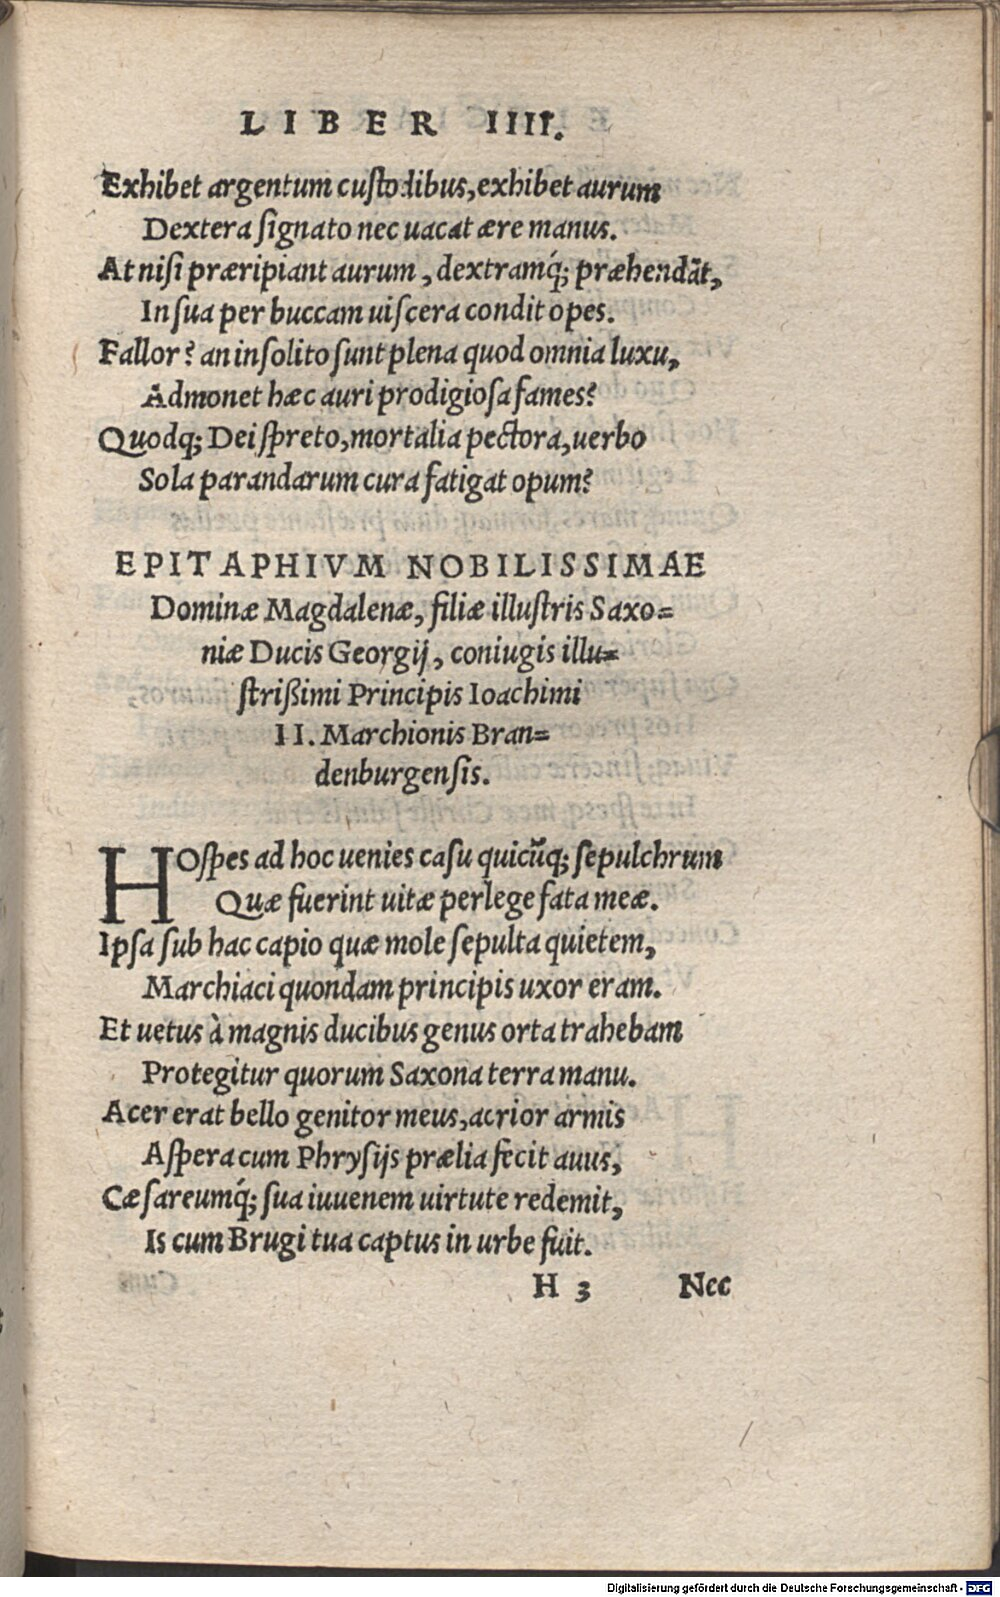 LIBER IIII.
Exhibet argentum custodibus, exhibet aurum
Dextera signato nec uacat ære manus.
At nisi præripiant aurum, dextramq́; præhendãt,
In sua per buccam uiscera condit opes.
Fallor? an insolito sunt plena quod omnia luxu,
Admonet hæc auri prodigiosa fames?
Quodq; Dei spreto, mortalia pectora, uerbo
Sola parandarum cura fatigat opum?
EPITAPHIVM NOBILISSIMAE
Dominæ Magdalenæ, filiæ illustris Saxo=
niæ Ducis Georgij, coniugis illu=
strißimi Principis Ioachimi
II. Marchionis Bran=
denburgensis.
HOspes ad hoc uenies casu quicũq; sepulchrum
Quæ fuerint uitæ perlege fata meæ.
Ipsa sub hac capio quæ mole sepulta quietem,
Marchiaci quondam principis uxor eram.
Et uetus à magnis ducibus genus orta trahebam
Protegitur quorum Saxona terra manu.
Acer erat bello genitor meus, acrior armis
Aspera cum Phrysijs prælia fecit auus,
Cæsareumq́; sua iuuenem uirtute redemit,
Is cum Brugi tua captus in urbe fuit.
H 3 Nec
Digitalisierung gefördert durch die Deutsche Forschungsgemeinschaft - DFG